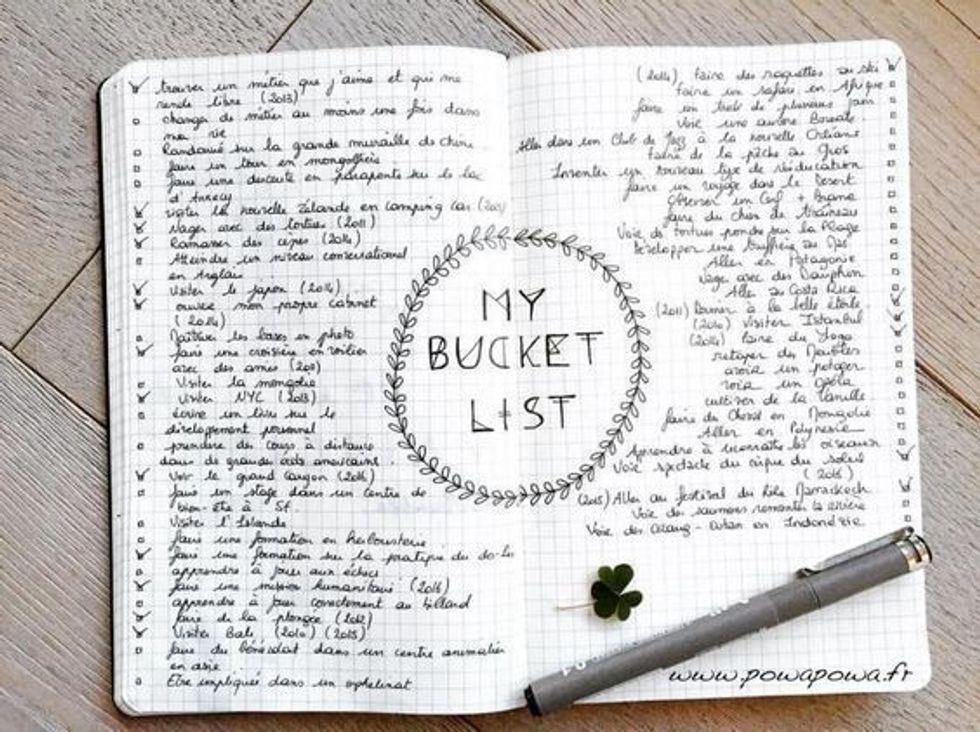 trouver un métier que j'aime et qui me
rende libre (2013)
changer de métier au moins une fois dans
ma vie
Randonnée sur la grande muraille de chine
faire un tour en mongolfière
faire une descente en parapente sur le lac
d'Annecy
visiter la nouvelle Zélande en camping car
Nager avec des tortues (2011)
Ramasser des cèpes (2014)
Atteindre un niveau conversationnel
en Anglais
Visiter le Japon (2014)
ouvrir mon propre cabinet
(2014)
Maîtriser les bases en photo
faire une croisière en voilier
avec des amis (2011)
Visiter la mongolie
Visiter NYC (2013)
écrire un livre sur le
développement personnel
prendre des cours à distance
dans de grandes écoles americaines
Voir le grand canyon (2016)
faire un stage dans un centre de
bien-être à SF
Visiter l'Islande
faire une formation en herboristerie
faire une formation sur la pratique du do-in
apprendre à jouer aux échecs
faire une mission humanitaire (2016)
apprendre à jouer correctement au billard
faire de la plongée (2012)
Visiter Bali (2010) (2015)
faire du bénévolat dans un centre animalier
en asie
Etre impliquée dans un orphelinat
MY
BUCKET
LIST
(2014) Faire des raquettes au ski
faire un safari en Afrique
faire un trek de plusieurs jours
Voir une aurore Boreale
Aller dans un Club de Jazz à la nouvelle Orléans
faire de la pêche au gros
Inventer un nouveau type de rééducation
faire un voyage dans le Desert
Observer un Cerf + Brame
faire du chien de traineau
Voir des tortues pondre sur la Plage
Développer une
Aller en Patagonie
Nager avec des Dauphin
Aller au Costa Rica
(2011) Dormir à la belle étoile
(2010) Visiter Istanbul
(2014) Faire du Yoga
retaper des Meubles
avoir un potager
voir un opéra
cultiver de la Vanille
faire du Cheval en Mongolie
Aller en Polynesie
Apprendre à reconnaître les oiseaux
Voir spectacle du cirque du soleil
(2016)
(2015) Aller au festival du Rire Marrakech
Voir des saumons remonter la rivière
Voir des Orang-Outan en Indonésie
www.powapowa.fr